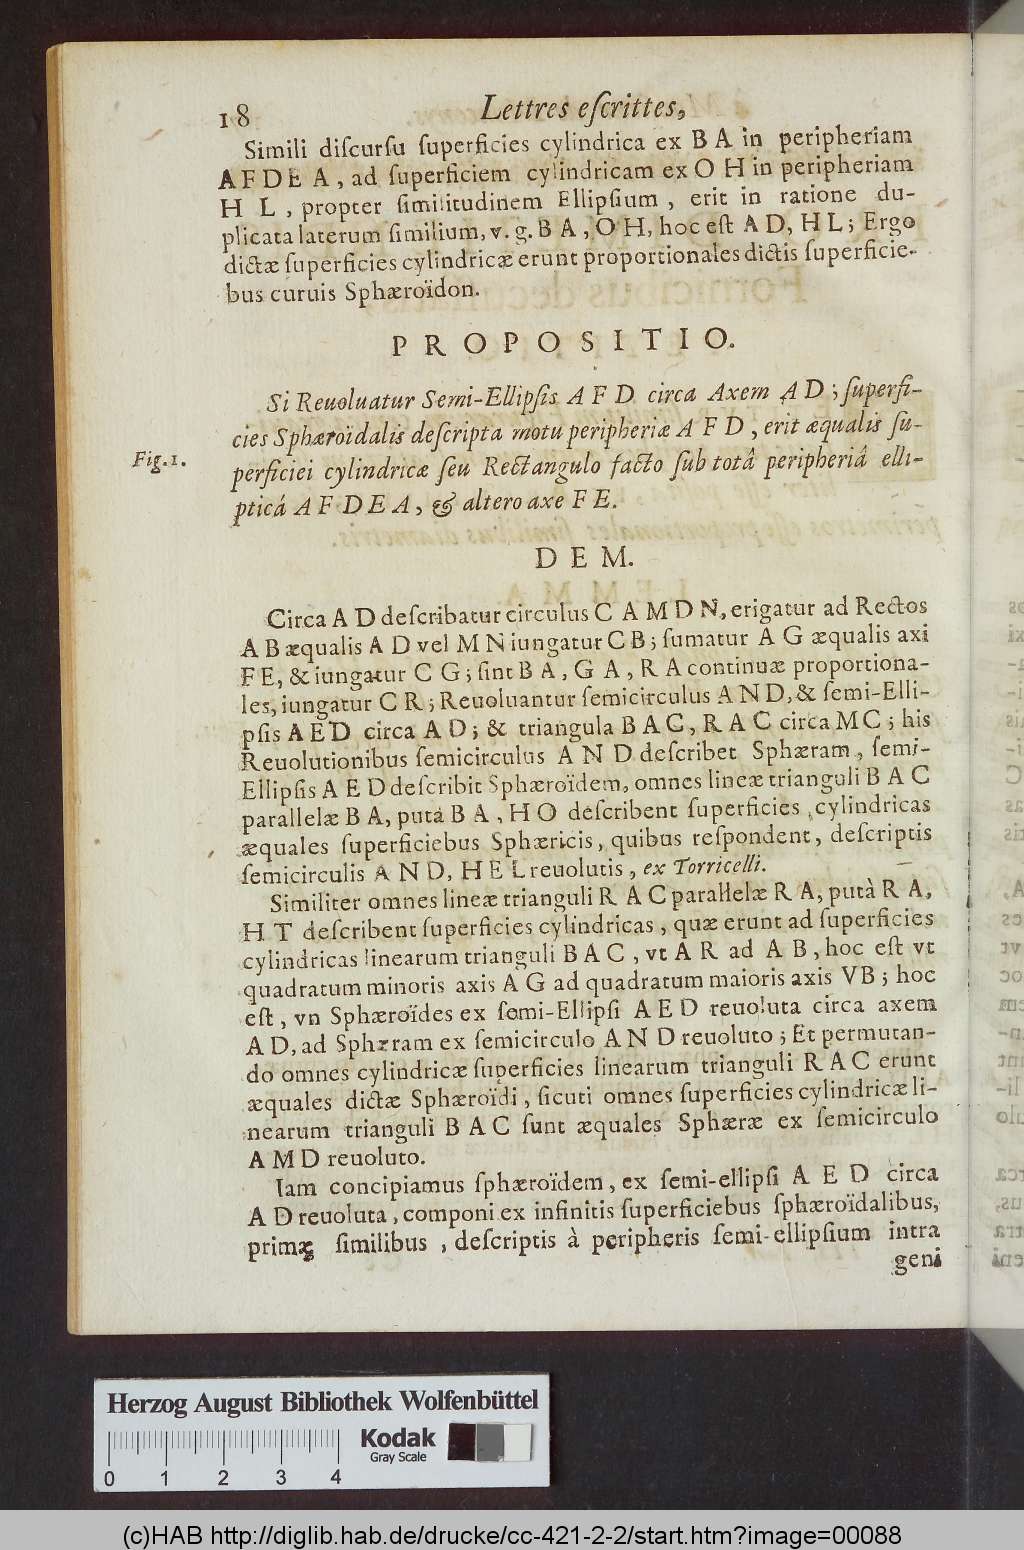 18 Lettres eſcrittes,
Simili diſcurſu ſuperficies cylindrica ex B A in peripheriam
A F D E A, ad ſuperficiem cylindricam ex O H in peripheriam
H L, propter ſimilitudinem Ellipſium, erit in ratione du-
plicata laterum ſimilium, v. g. B A, O H, hoc eſt A D, H L; Ergo
dictæ ſuperficies cylindricæ erunt proportionales dictis ſuperficie-
bus curuis Sphæroïdon.
PROPOSITIO.
Si Reuoluatur Semi-Ellipſis A F D circa Axem A D; ſuperfi-
cies Sphæroïdalis deſcripta motu peripheriæ A F D, erit æqualis ſu-
Fig. 1. perficiei cylindricæ ſeu Rectangulo facto ſub totâ peripheriâ elli-
pticâ A F D E A, & altero axe F E.
DEM.
Circa A D deſcribatur circulus C A M D N, erigatur ad Rectos
A B æqualis A D vel M N iungatur C B; ſumatur A G æqualis axi
F E, & iungatur C G; ſint B A, G A, R A continuæ proportiona-
les, iungatur C R; Reuoluantur ſemicirculus A N D, & ſemi-Elli-
pſis A E D circa A D; & triangula B A C, R A C circa M C; his
Reuolutionibus ſemicirculus A N D deſcribet Sphæram, ſemi-
Ellipſis A E D deſcribit Sphæroïdem, omnes lineæ trianguli B A C
parallelæ B A, putà B A, H O deſcribent ſuperficies cylindricas
æquales ſuperficiebus Sphæricis, quibus reſpondent, deſcriptis
ſemicirculis A N D, H E L reuolutis, ex Torricelli.
Similiter omnes lineæ trianguli R A C parallelæ R A, putà R A,
H T deſcribent ſuperficies cylindricas, quæ erunt ad ſuperficies
cylindricas linearum trianguli B A C, vt A R ad A B, hoc eſt vt
quadratum minoris axis A G ad quadratum maioris axis VB; hoc
eſt, vn Sphæroïdes ex ſemi-Ellipſi A E D reuoluta circa axem
A D, ad Sphæram ex ſemicirculo A N D reuoluto; Et permutan-
do omnes cylindricæ ſuperficies linearum trianguli R A C erunt
æquales dictæ Sphæroïdi, ſicuti omnes ſuperficies cylindricæ li-
nearum trianguli B A C ſunt æquales Sphæræ ex ſemicirculo
A M D reuoluto.
Iam concipiamus ſphæroïdem, ex ſemi-ellipſi A E D circa
A D reuoluta, componi ex infinitis ſuperficiebus ſphæroïdalibus,
primæ ſimilibus, deſcriptis à peripheris ſemi-ellipſium intra
geni
Herzog August Bibliothek Wolfenbüttel
Kodak
Gray Scale
0 1 2 3 4
(c)HAB http://diglib.hab.de/drucke/cc-421-2-2/start.htm?image=00088